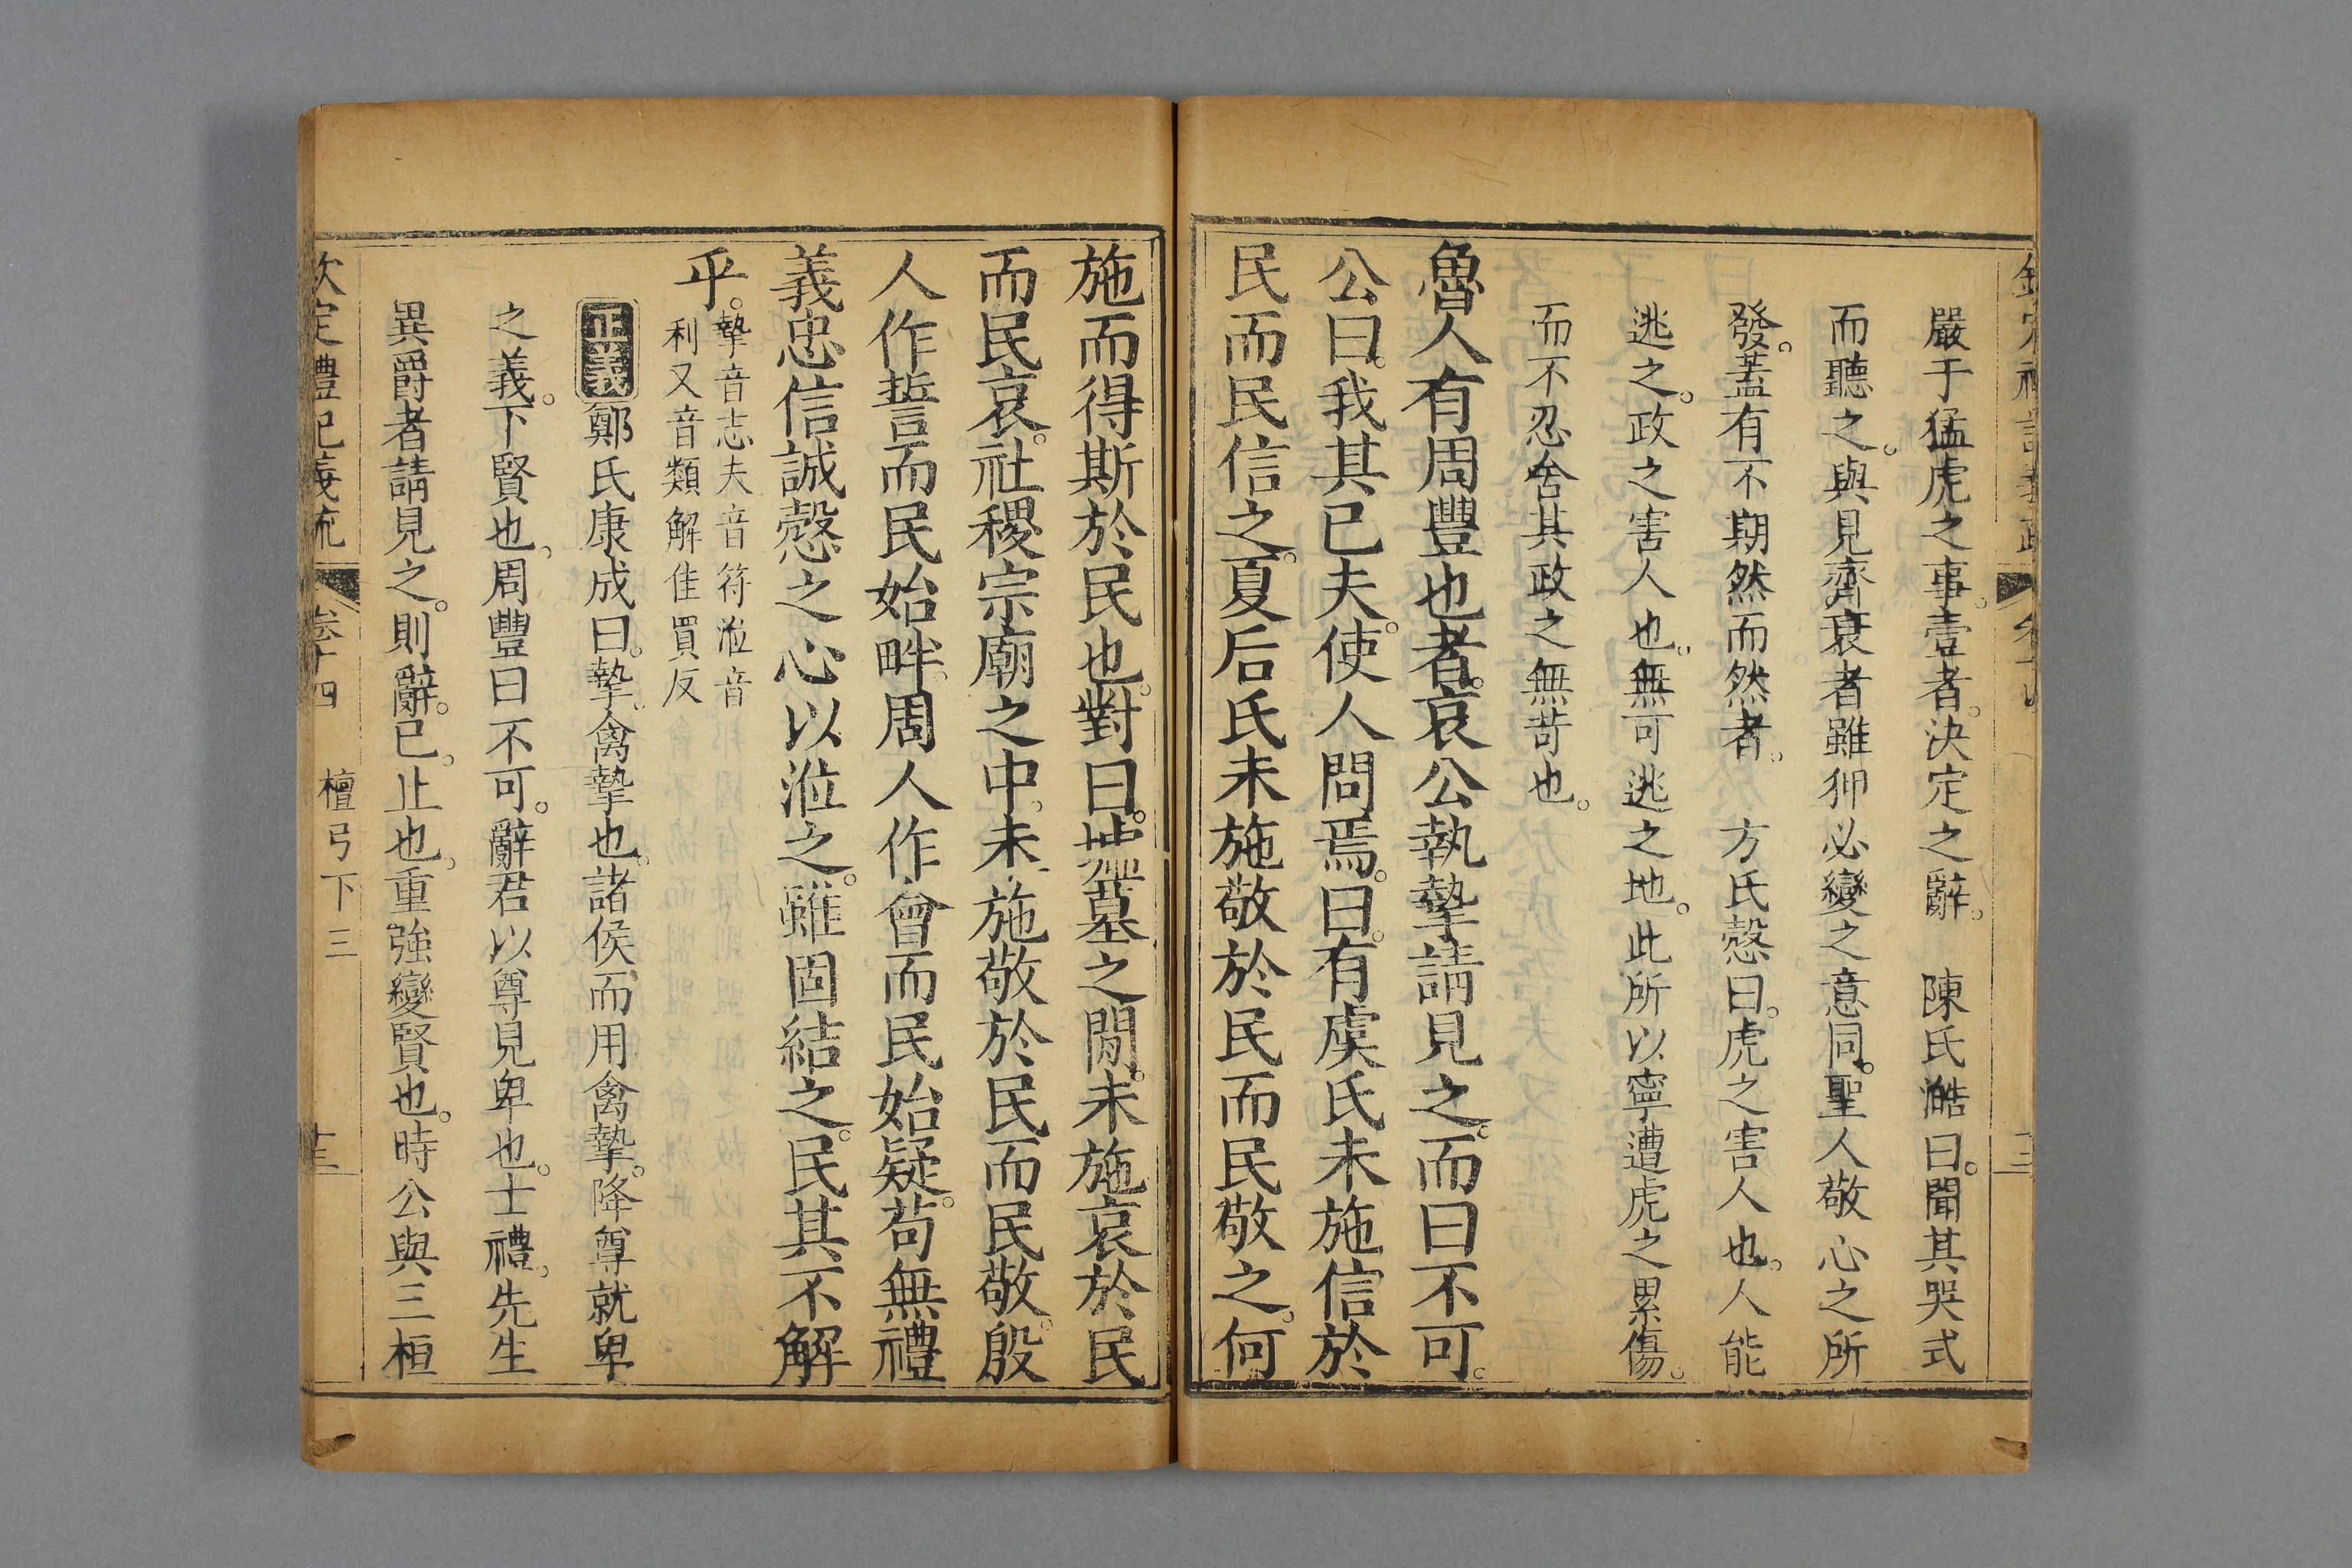 嚴于猛虎之事。壹者。決定之辭。　陳氏澔曰。聞其哭式
而聽之。與見齊衰者雖狎必變之意同。聖人敬心之所
發。蓋有不期然而然者。　方氏慤曰。虎之害人也。人能
逃之。政之害人也。無可逃之地。此所以寧遭虎之累傷。
而不忍舍其政之無苛也。
魯人有周豐也者。哀公執摯請見之。而曰不可。
公曰。我其已夫。使人問焉。曰。有虞氏未施信於
民而民信之。夏后氏未施敬於民而民敬之。何
施而得斯於民也。對曰。墟墓之閒。未施哀於民
而民哀。社稷宗廟之中。未施敬於民而民敬。殷
人作誓而民始畔。周人作會而民始疑。苟無禮
義忠信誠慤之心以涖之。雖固結之。民其不解
乎。
摯音志夫音符涖音
利又音類解佳買反
正義鄭氏康成曰。摯。禽摯也。諸侯而用禽摯。降尊就卑
之義。下賢也。周豐曰不可。辭君以尊見卑也。士禮。先生
異爵者請見之。則辭。已。止也。重強變賢也。時公與三桓
欽定禮記義疏
卷十四
檀弓下三